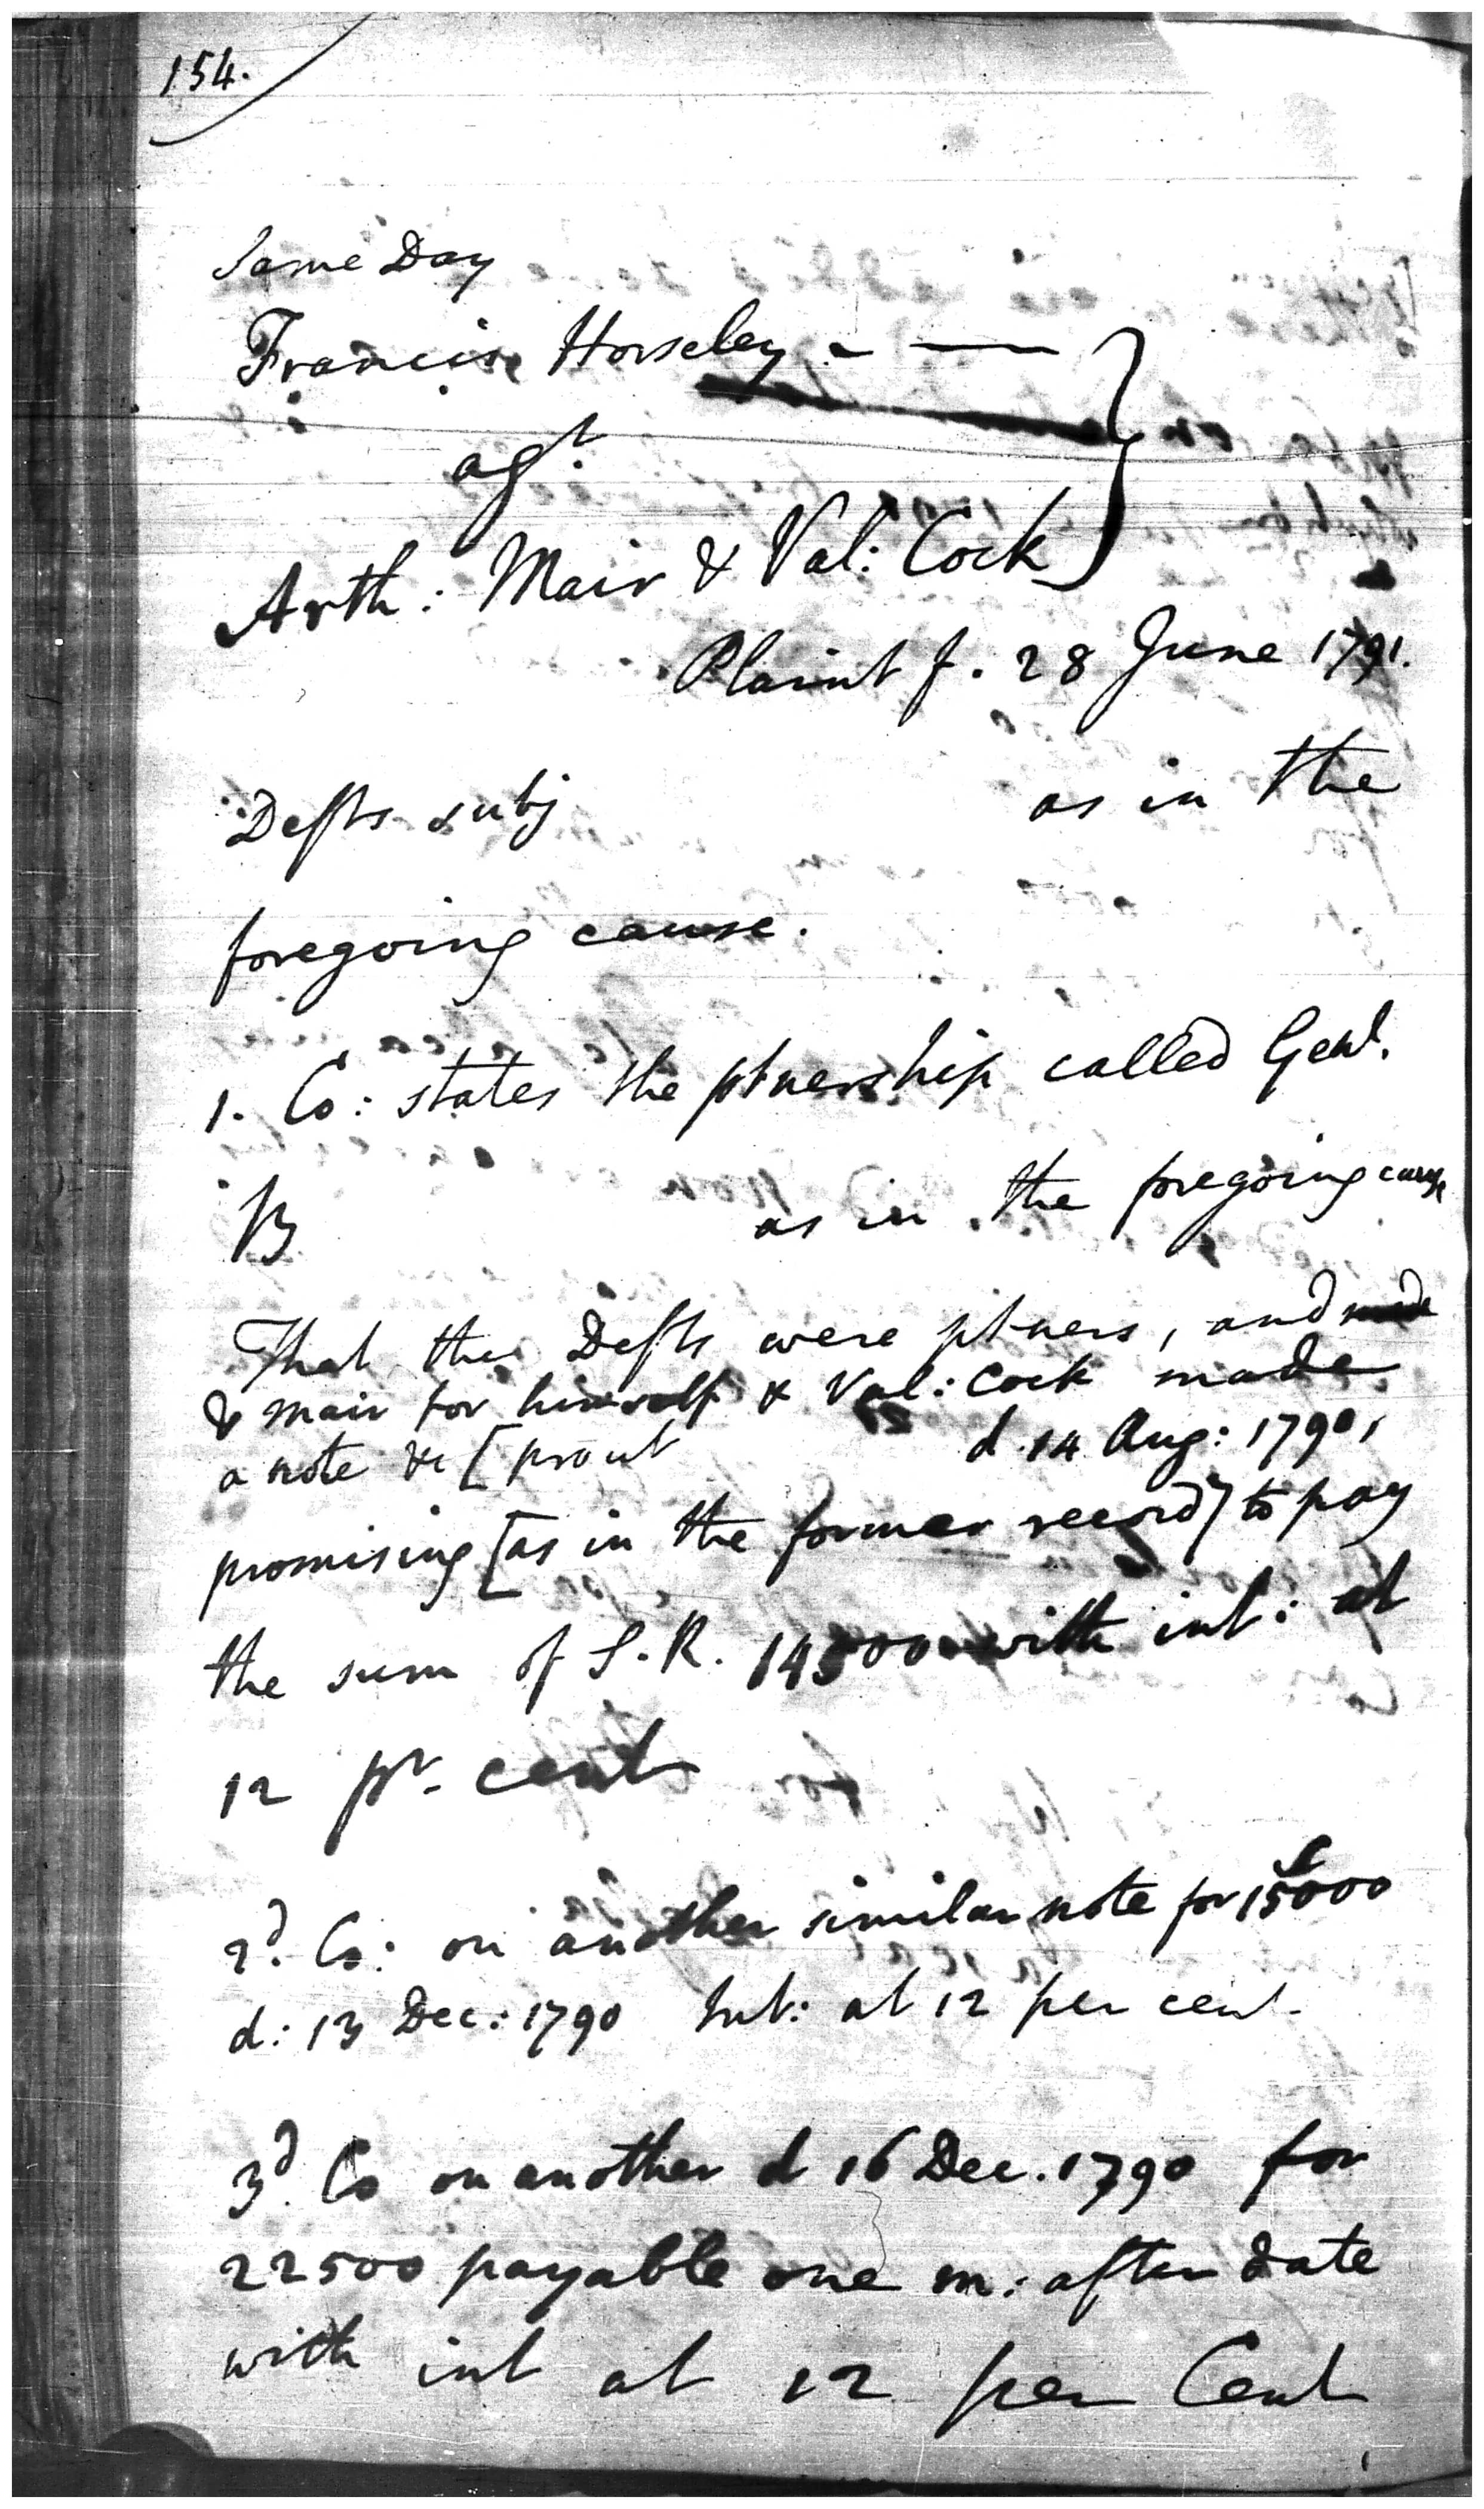 154.
Same Day
Francis Horseley - —
agt.
Arth: Mair & Val: Cock
Plaint f. 28 June 1791.
Defts subj as in the
foregoing cause.
1. Co: states the ptnership called Genl.
B as in the foregoing cause
That the Defts were ptners, and made
& Mair for himself & Val: Cock made
a note &c [prout d. 14 Aug: 1790,
promising [as in the former record] to pay
the sum of S.R. 14500 with int: at
12 pr. cent
2d. Co: on another similar note for 15000
d: 13 Dec: 1790 Int: at 12 per cent.
3d. Co on another d 16 Dec. 1790 for
22500 payable one m: after date
with int at 12 per Cent